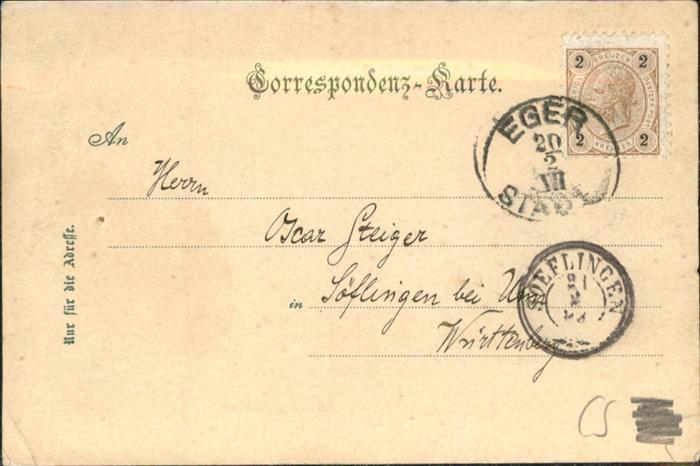 Correspondenz-Karte.
2 KREUZER 2
2 KREUZER 2
EGER
20
2
III
STADT
An
Herrn
Oscar Steiger
in Söflingen bei Ulm
Württenberg
SOEFLINGEN
21
Nur für die Adresse.
CS